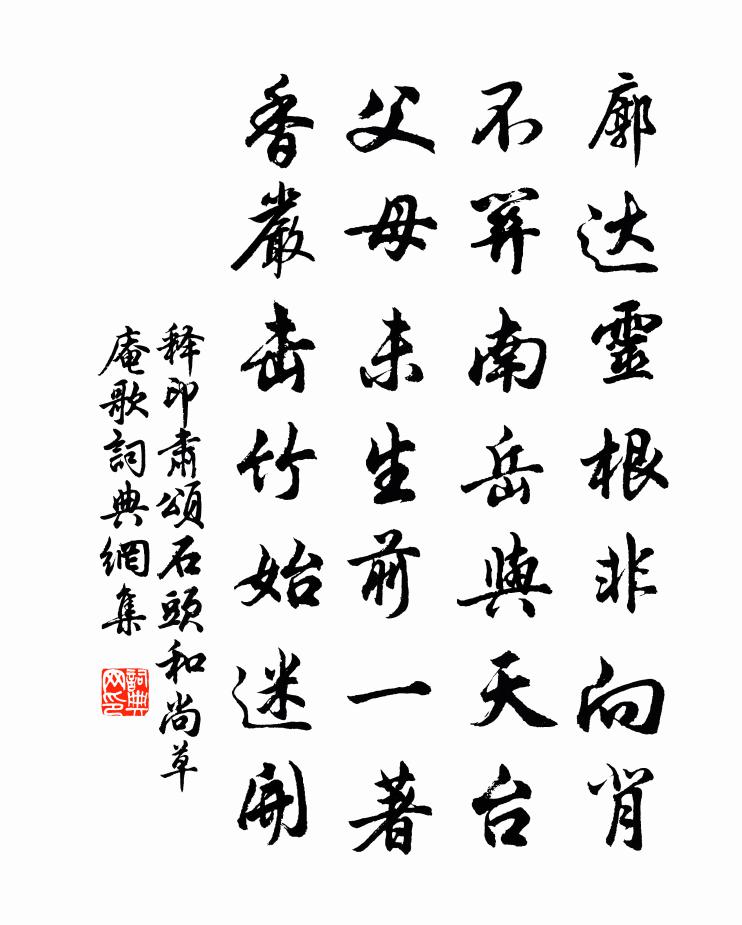 廓达靈根非向背
不筭南岳與天台
父母未生前一著
香嚴击竹始迷開
释印肃頌石頭和尚草
庵歌詞典網集
詞典
网印